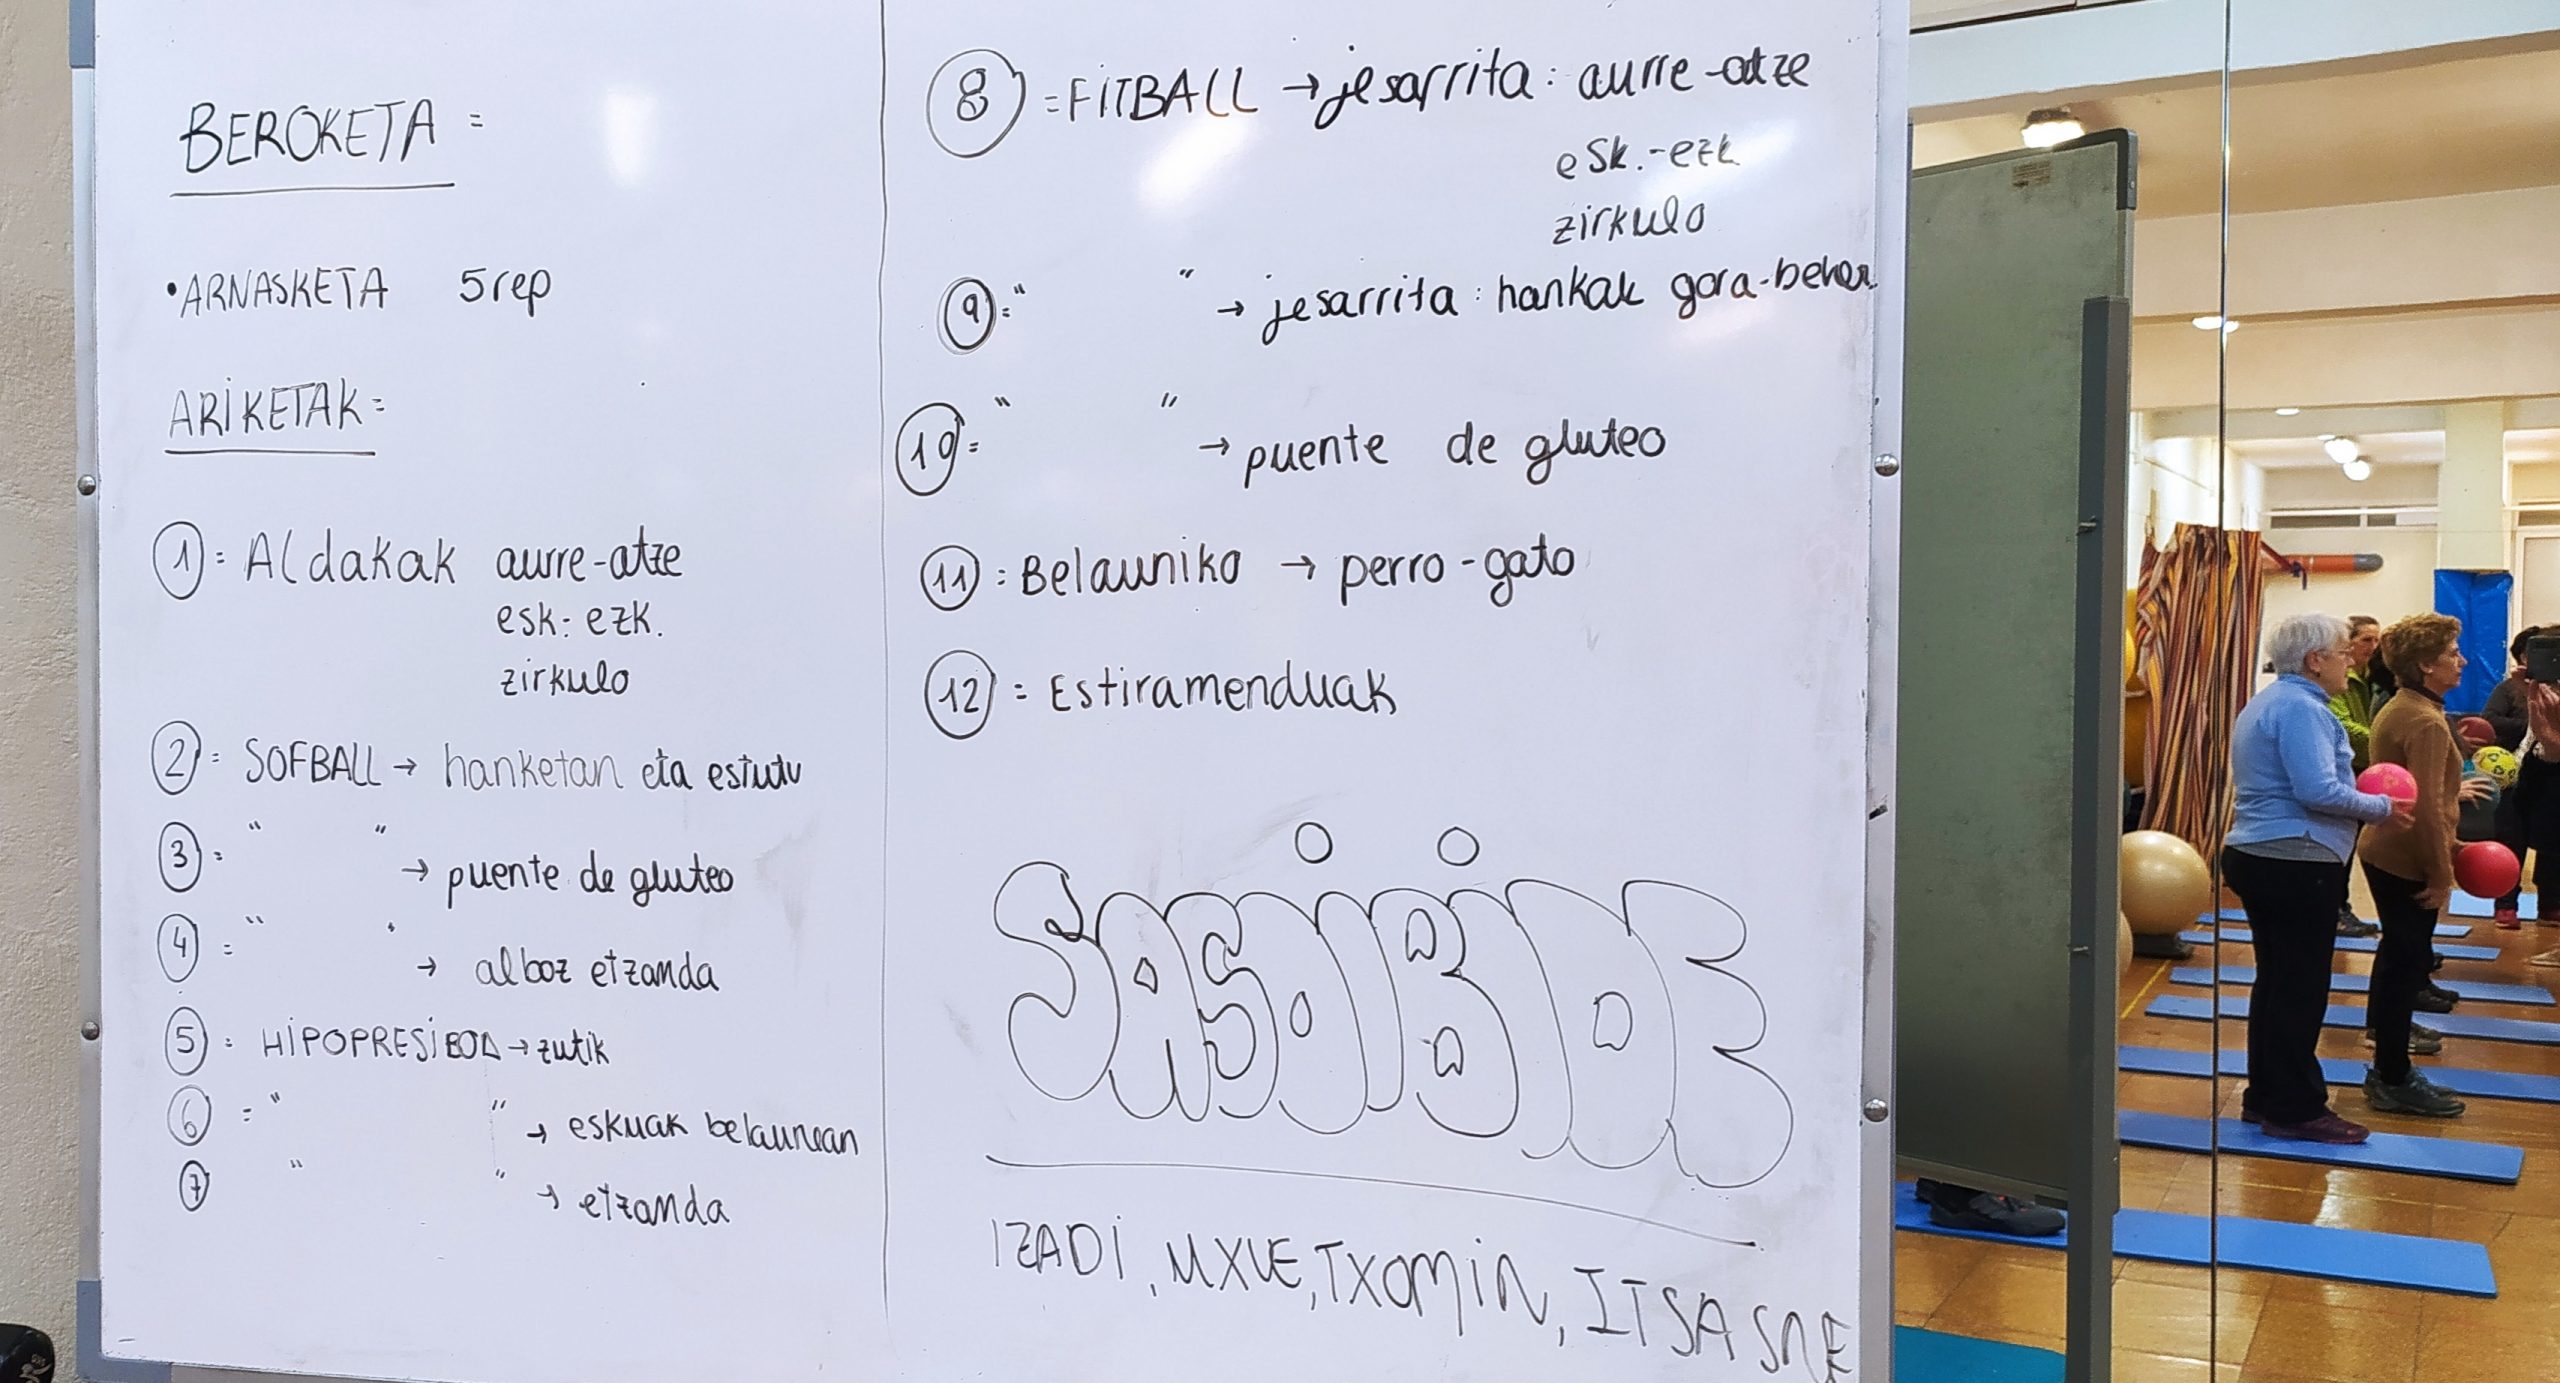 BEROKETA =
•ARNASKETA 5rep
ARIKETAK =
1 = Aldakak aurre-atze
esk.-ezk.
zirkulo
2 = SOFBALL → hanketan eta estutu
3 = " " → puente de gluteo
4 = " " → alboz etzanda
5 = HIPOPRESIBOA → zutik
6 = " " → eskuak belaunean
7 " " → etzanda
8 = FITBALL → jesarrita: aurre-atze
esk.-ezk
zirkulo
9 = " " → jesarrita: hankak gora-behera
10 = " " → puente de gluteo
11 = Belauniko → perro-gato
12 = Estiramenduak
SASOIBIDE
IZADI, TXOMIN, ITSASNE